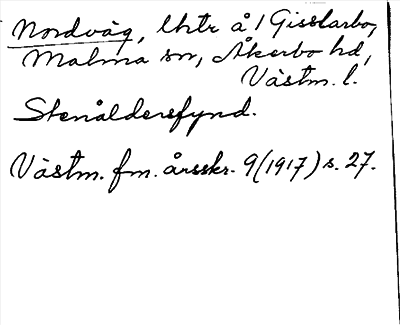 Nordväg, lhtr å 1 Gisslarbo,
Malma sn, Åkerbo hd,
Västm. l.
Stenåldersfynd.
Västm. fm. årsskr. 9(1917) s. 27.